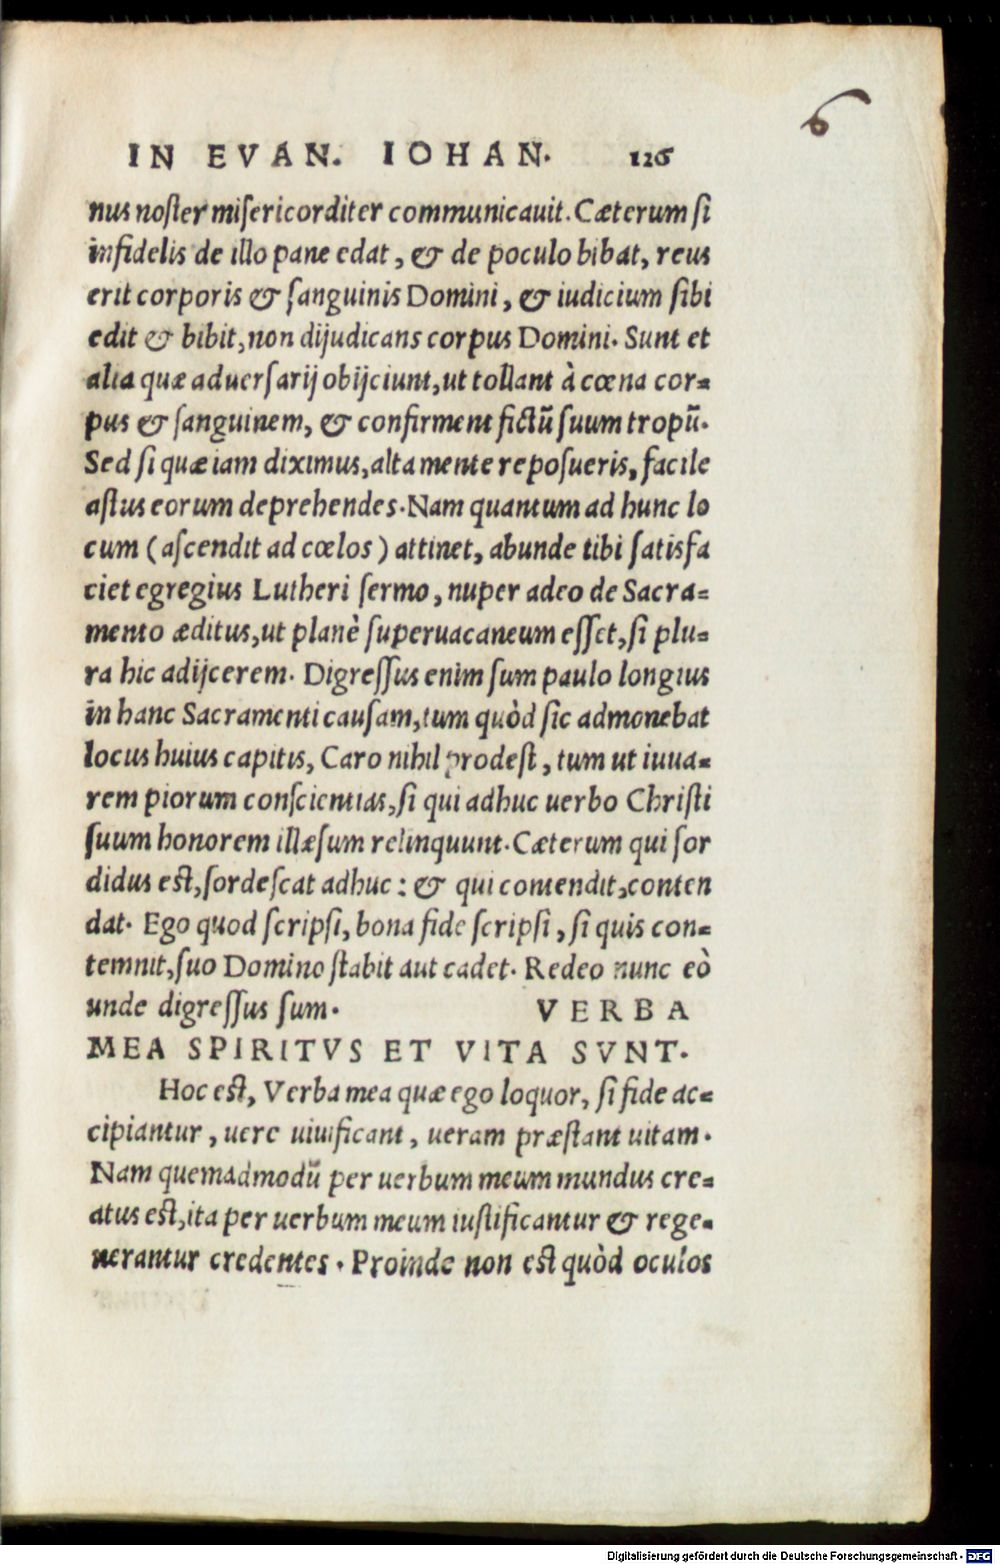 IN EVAN. IOHAN. 126
nus noſter miſericorditer communicauit. Cæterum ſi
infidelis de illo pane edat, & de poculo bibat, reus
erit corporis & ſanguinis Domini, & iudicium ſibi
edit & bibit, non dijudicans corpus Domini. Sunt et
alia quæ aduerſarij obijciunt, ut tollant à cœna cor=
pus & ſanguinem, & confirment fictũ ſuum tropũ.
Sed ſi quæ iam diximus, alta mente repoſueris, facile
aſtus eorum deprehendes. Nam quantum ad hunc lo
cum (aſcendit ad cœlos) attinet, abunde tibi ſatisfa
ciet egregius Lutheri ſermo, nuper adeo de Sacra=
mento æditus, ut planè ſuperuacaneum eſſet, ſi plu=
ra hic adijcerem. Digreſſus enim ſum paulo longius
in hanc Sacramenti cauſam, tum quòd ſic admonebat
locus huius capitis, Caro nihil prodeſt, tum ut iuua=
rem piorum conſcientias, ſi qui adhuc uerbo Chriſti
ſuum honorem illæſum relinquunt. Cæterum qui ſor
didus eſt, ſordeſcat adhuc: & qui contendit, conten
dat. Ego quod ſcripſi, bona fide ſcripſi, ſi quis con=
temnit, ſuo Domino ſtabit aut cadet. Redeo nunc eò
unde digreſſus ſum. VERBA
MEA SPIRITVS ET VITA SVNT.
Hoc eſt, Verba mea quæ ego loquor, ſi fide ac=
cipiantur, uere uiuificant, ueram præſtant uitam.
Nam quemadmodũ per uerbum meum mundus cre=
atus eſt, ita per uerbum meum iuſtificantur & rege=
nerantur credentes. Proinde non eſt quòd oculos
Digitalisierung gefördert durch die Deutsche Forschungsgemeinschaft - DFG